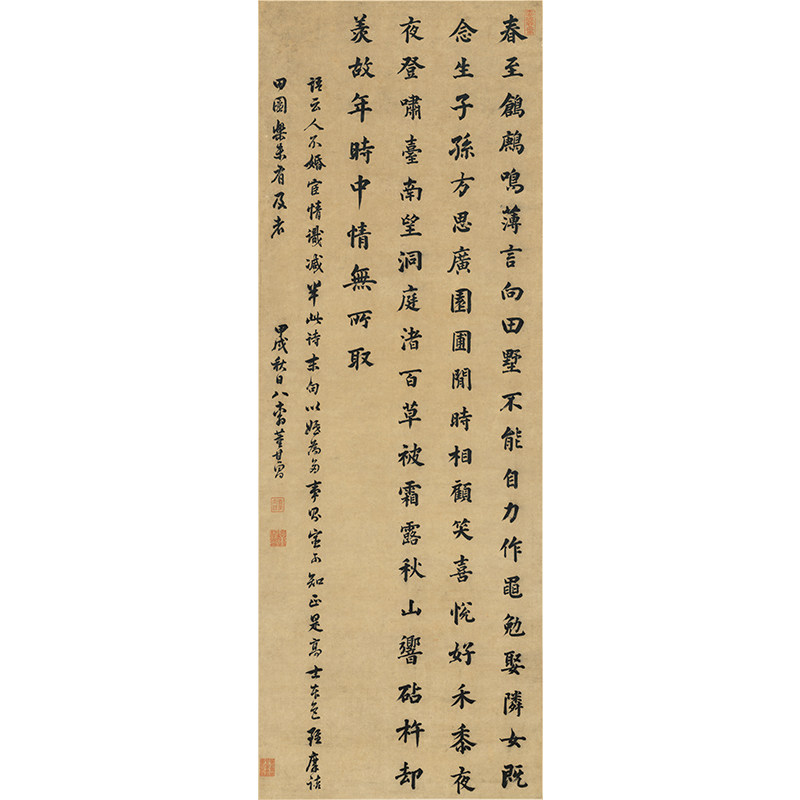 春至鶬鶊鳴薄言向田墅不能自力作黽勉娶隣女既
念生子孫方思廣園圃閒時相顧笑喜悅好禾黍夜
夜登嘯臺南望洞庭渚百草被霜露秋山響砧杵却
羨故年時中情無所取
語云人不婚宦情識減半此诗末句以婚為多事則宦可知正是高士本色雖摩詰
田園樂未有及者
甲戌秋日八十翁董其昌